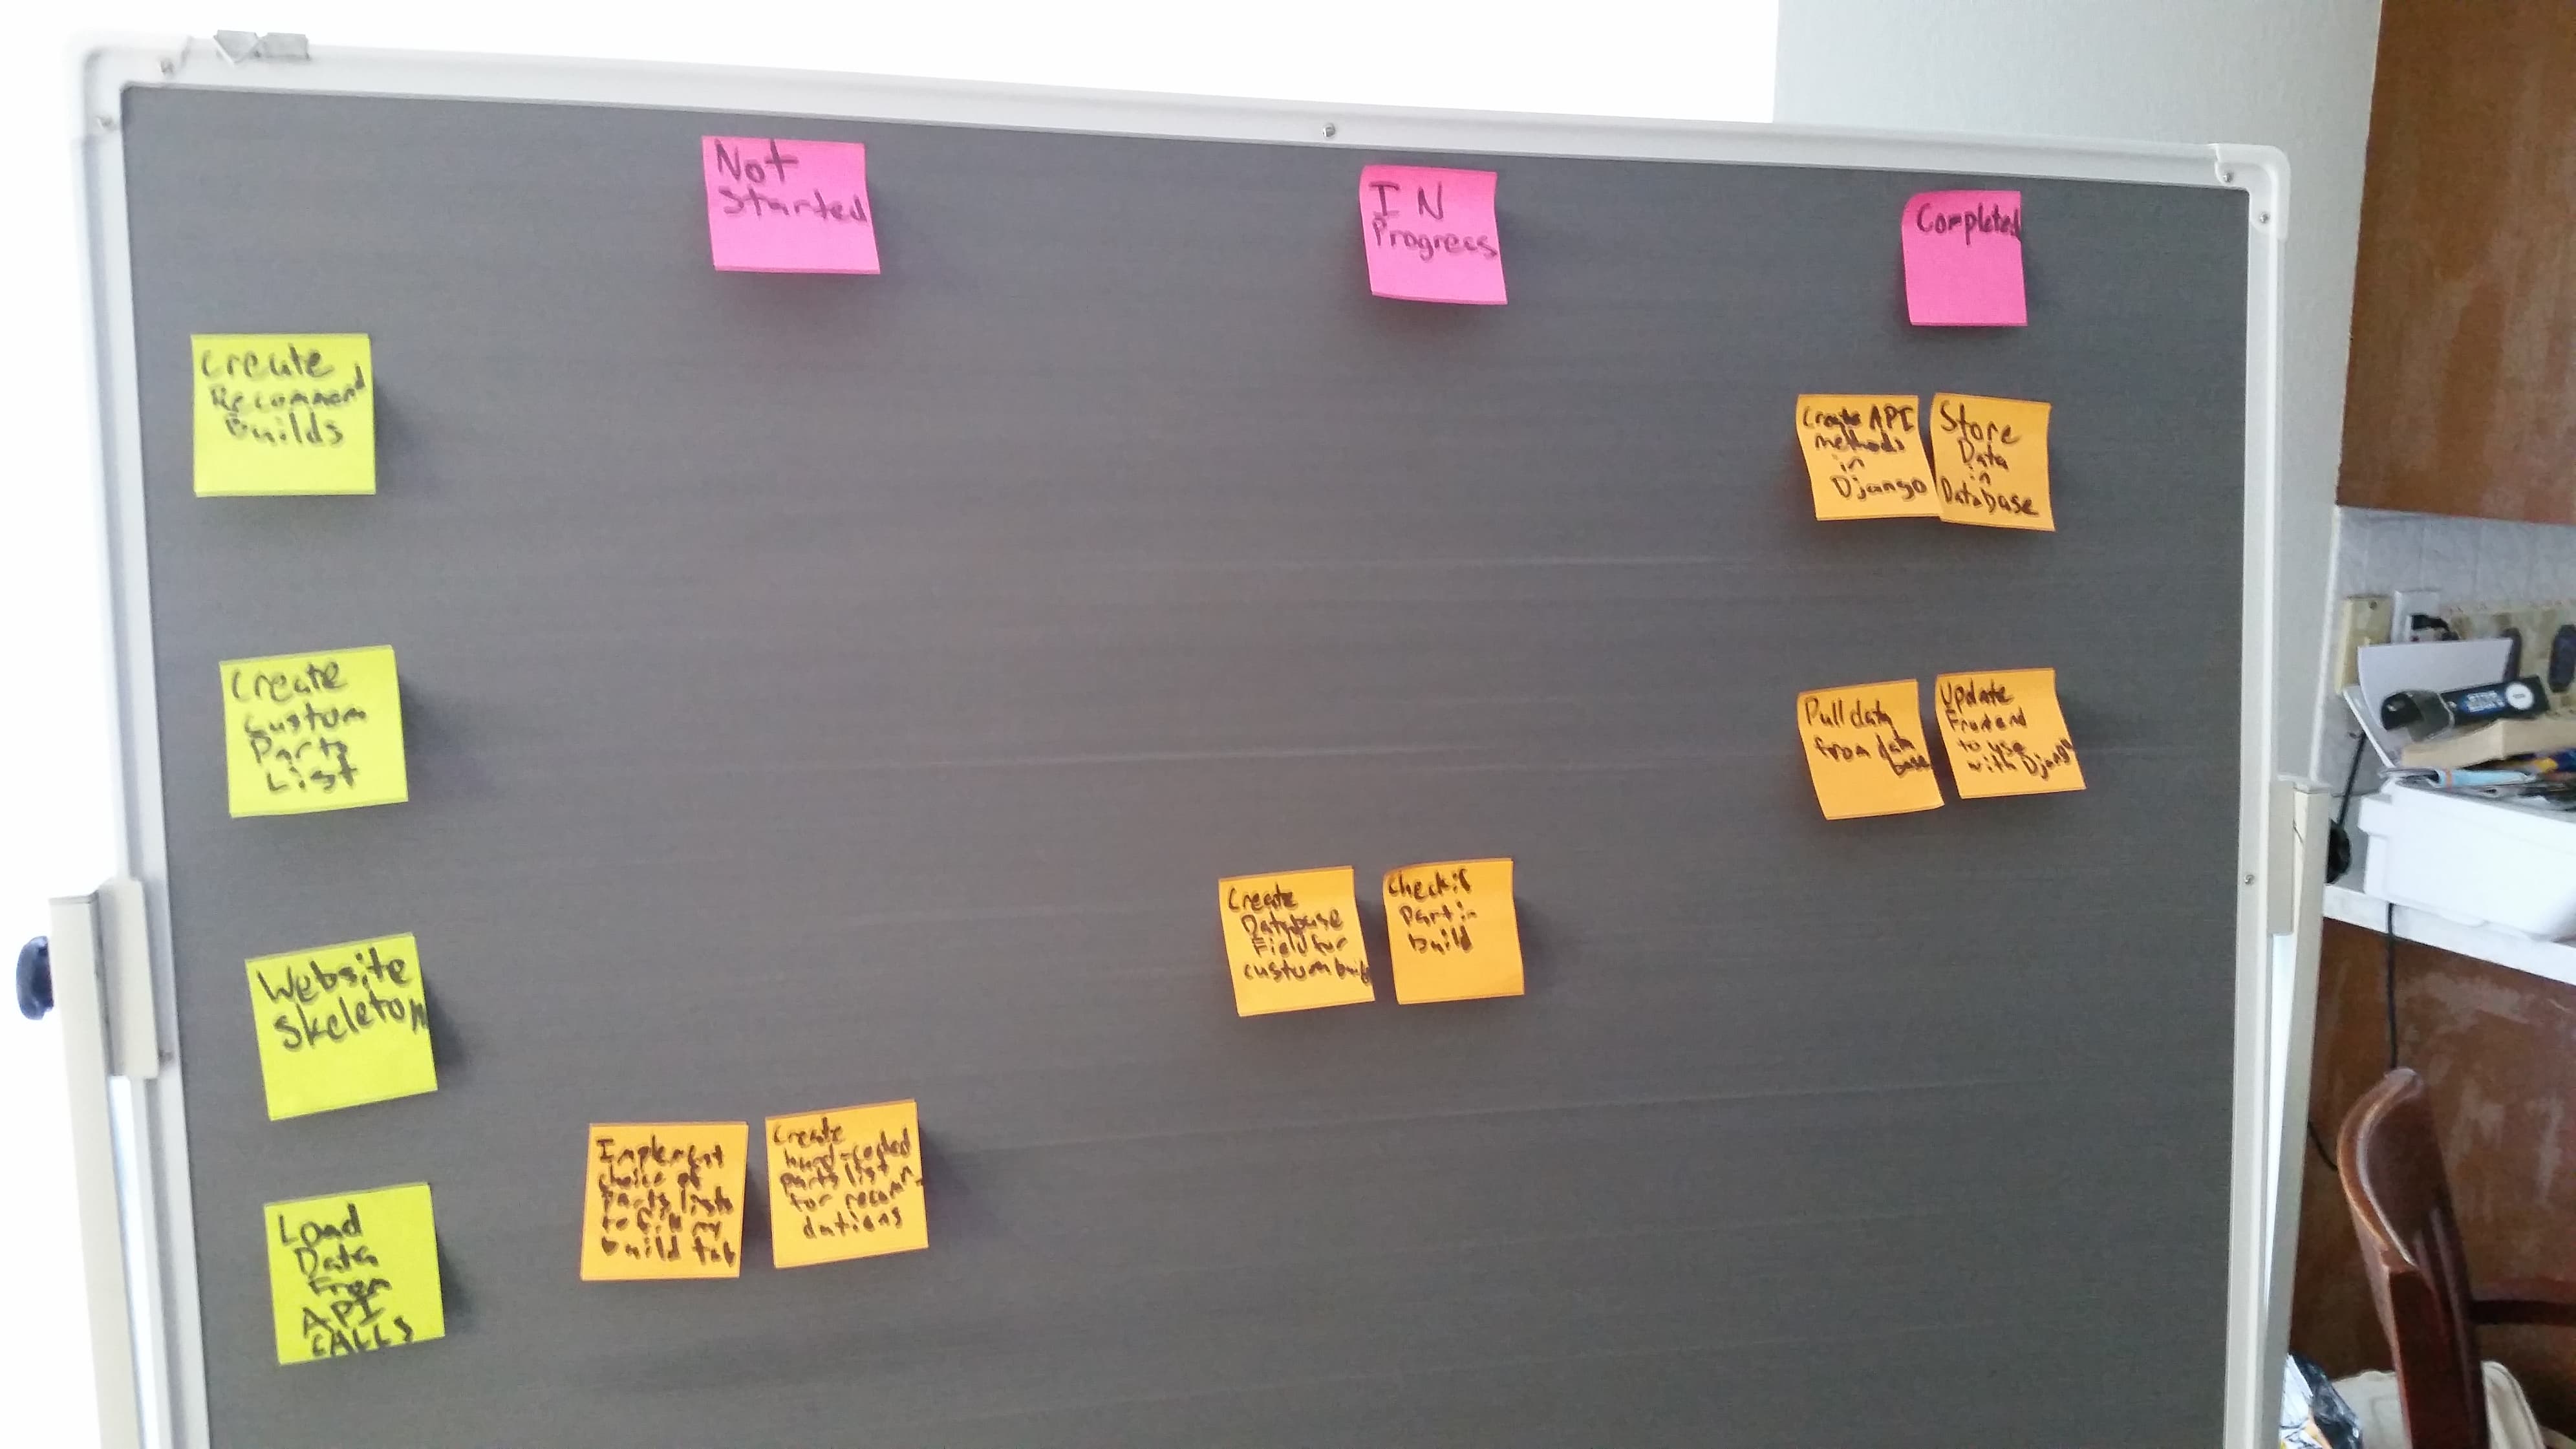 Not
Started
IN
Progress
Completed
Create
Recommend
Builds
Create API
methods
in
Django
Store
Data
in
Database
Create
Custom
Parts
List
Pull data
from data
base
Update
Frontend
to use
with Django
Website
Skeleton
Create
Database
Field for
custom build
Check if
part in
build
Load
Data
From
API
CALLS
Implement
choice of
parts lists
to fill my
build tab
Create
hard-coded
parts list
for recom-
dations